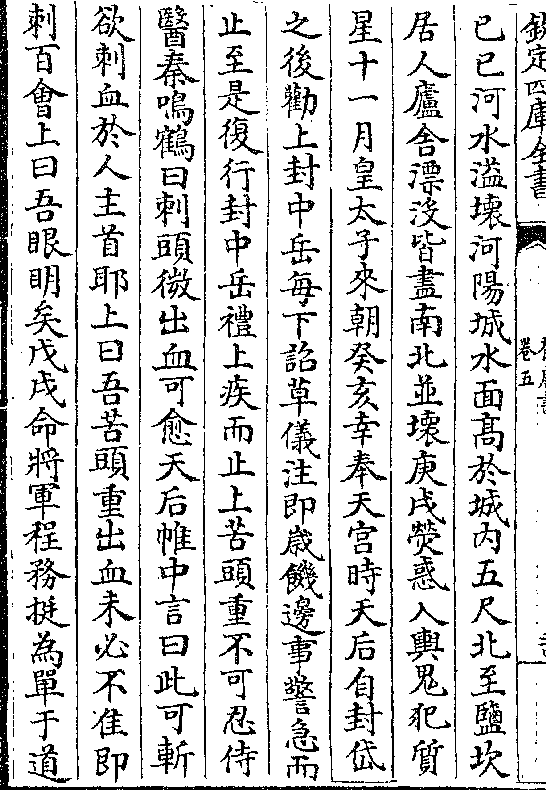 欽定四庫全書
卷五
己巳河水溢壞河陽城水面高於城内五尺北至鹽坎
居人廬舍漂没皆盡南北並壞庚戌熒惑入輿鬼犯質
星十一月皇太子來朝癸亥幸奉天宮時天后自封岱
之後勸上封中岳每下詔草儀注即歲饑邊事警急而
止至是復行封中岳禮上疾而止上苦頭重不可忍侍
醫秦鳴鶴曰刺頭微出血可愈天后帷中言曰此可斬
欲刺血於人主首耶上曰吾苦頭重出血未必不佳即
刺百會上曰吾眼明矣戊戌命將軍程務挺為單于道